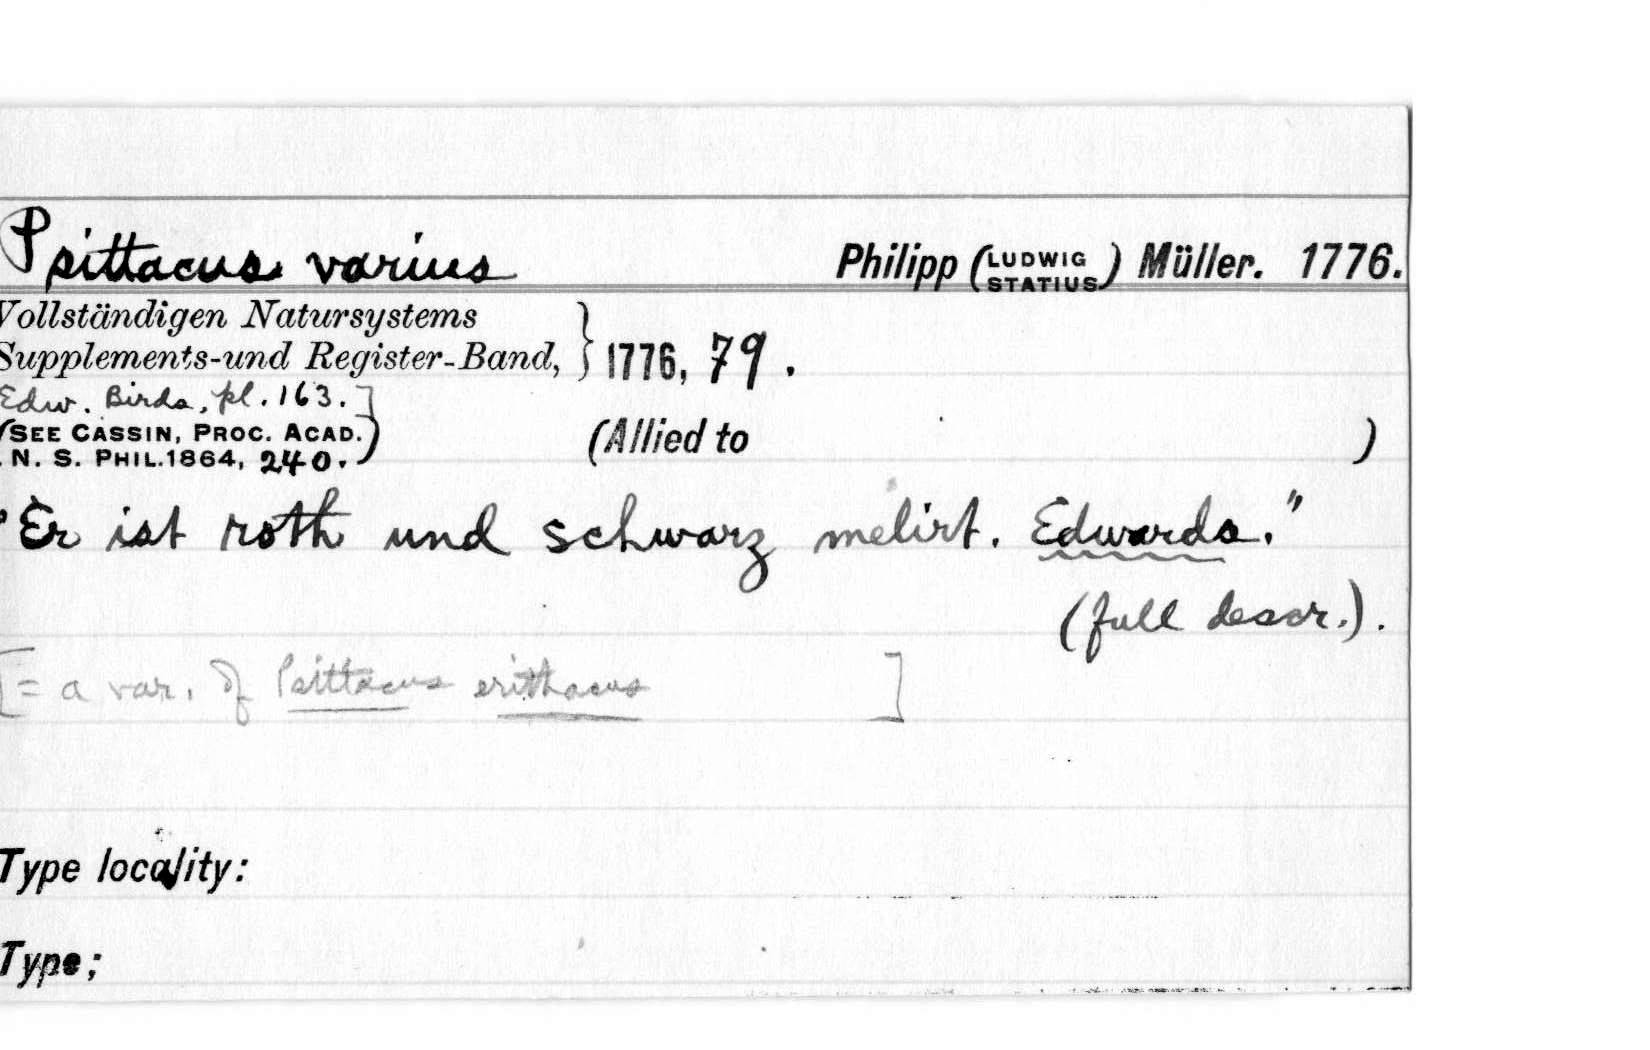 Psittacus varius Philipp (LUDWIG STATIUS) Müller. 1776.
Vollständigen Natursystems
Supplements-und Register-Band, } 1776, 79.
Edw. Birds, pl. 163.]
(SEE CASSIN, PROC. ACAD.
N. S. PHIL. 1864, 240.)
(Allied to )
"Er ist roth und schwarz melirt. Edwards."
(full descr.).
[= a var. of Psittacus erithacus ]
Type locality:
Type;